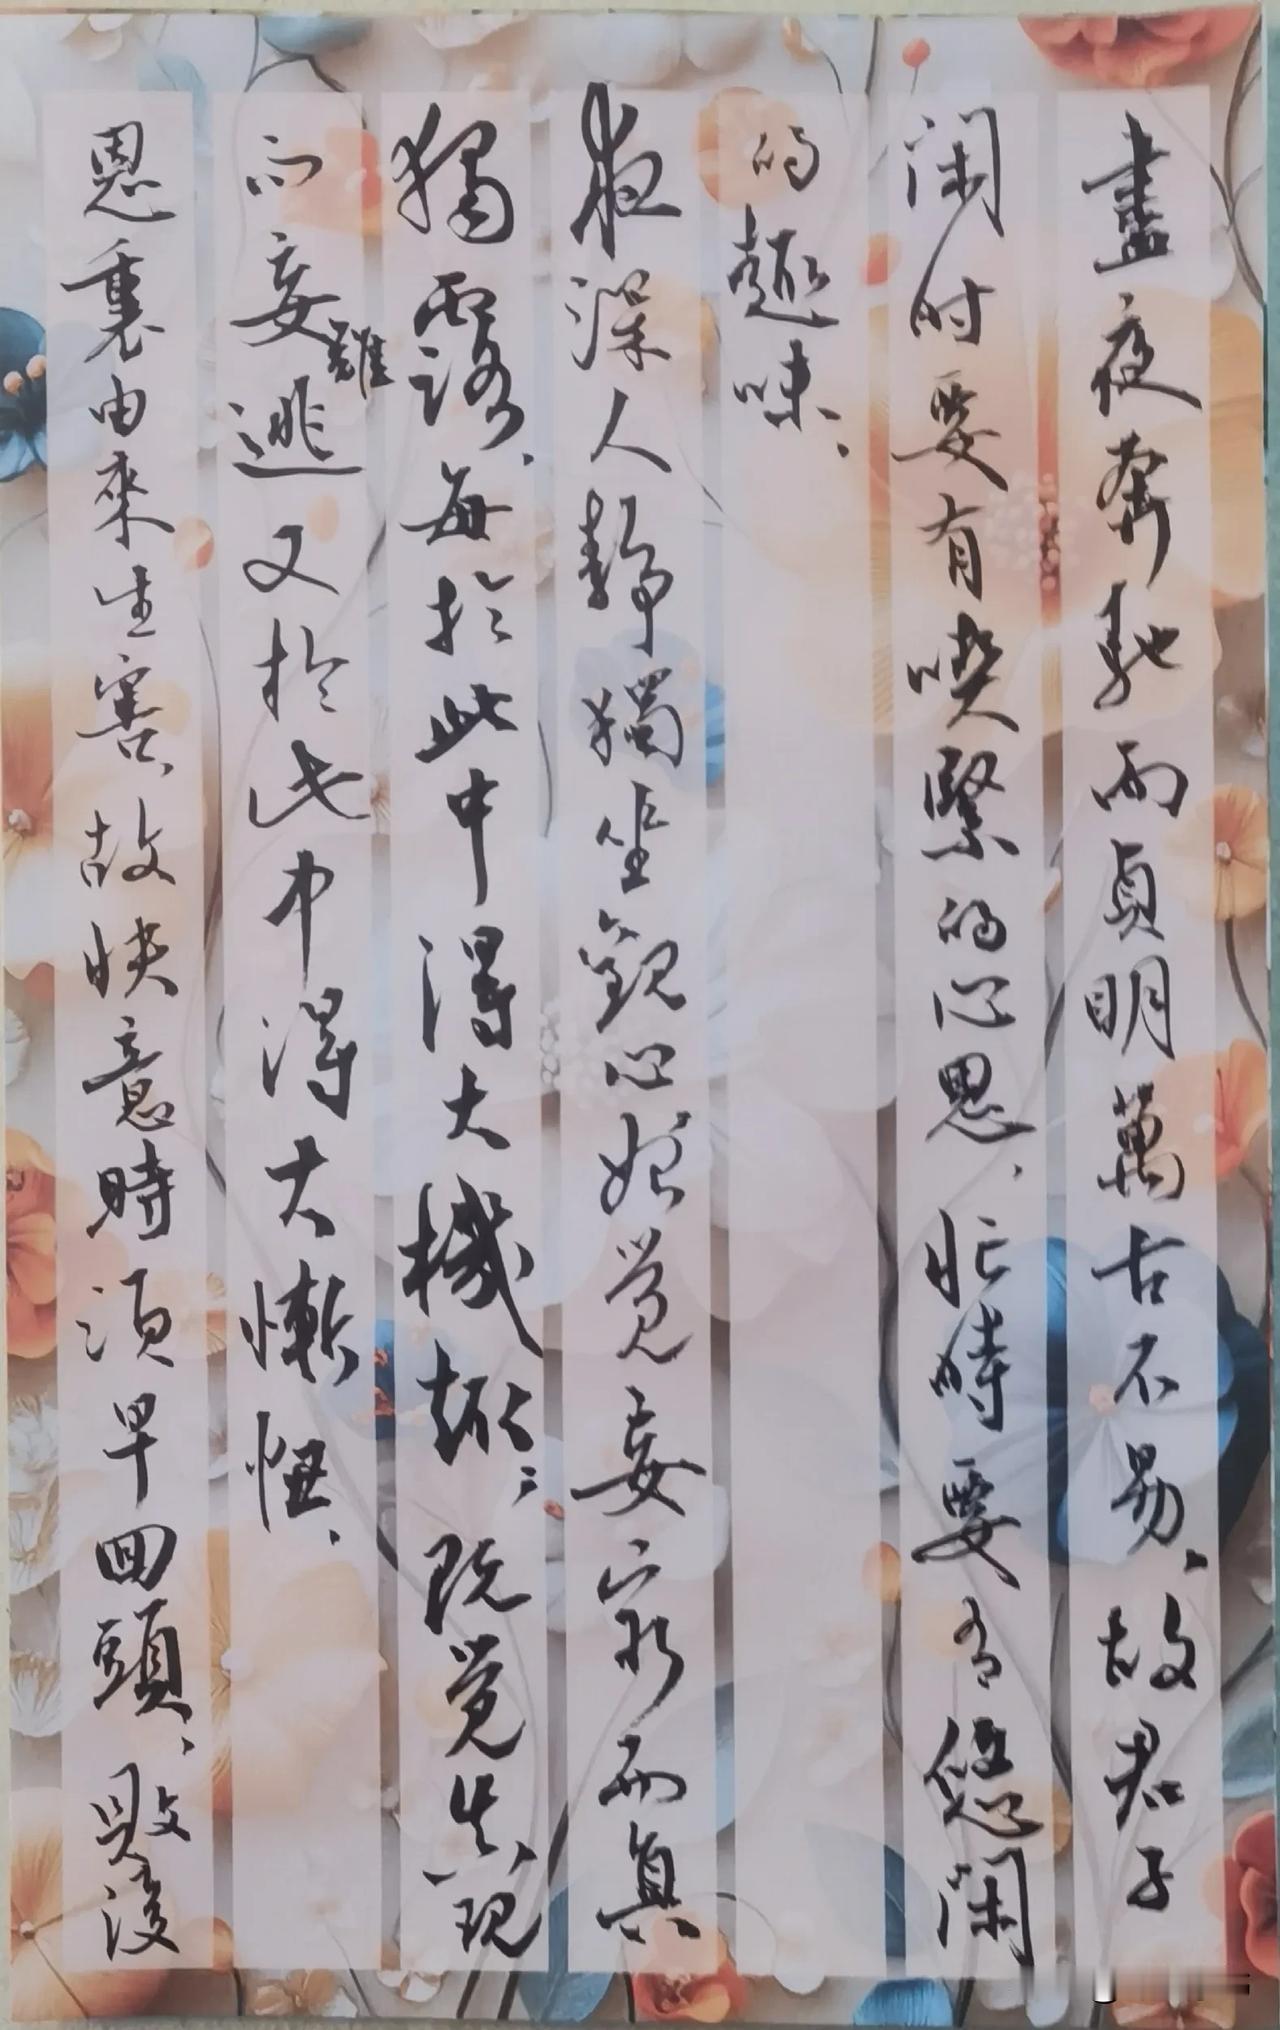 晝夜奔馳而貞明萬古不易、故君子
闲时要有喫緊的心思、忙時要有悠闲
的趣味、
夜深人靜獨坐觀心始覺妄窮而真
獨露、每於此中得大機趣；既覺真現
而妄難逃又於此中得大慚忸、
恩裏由來生害、故快意時須早回頭、敗後